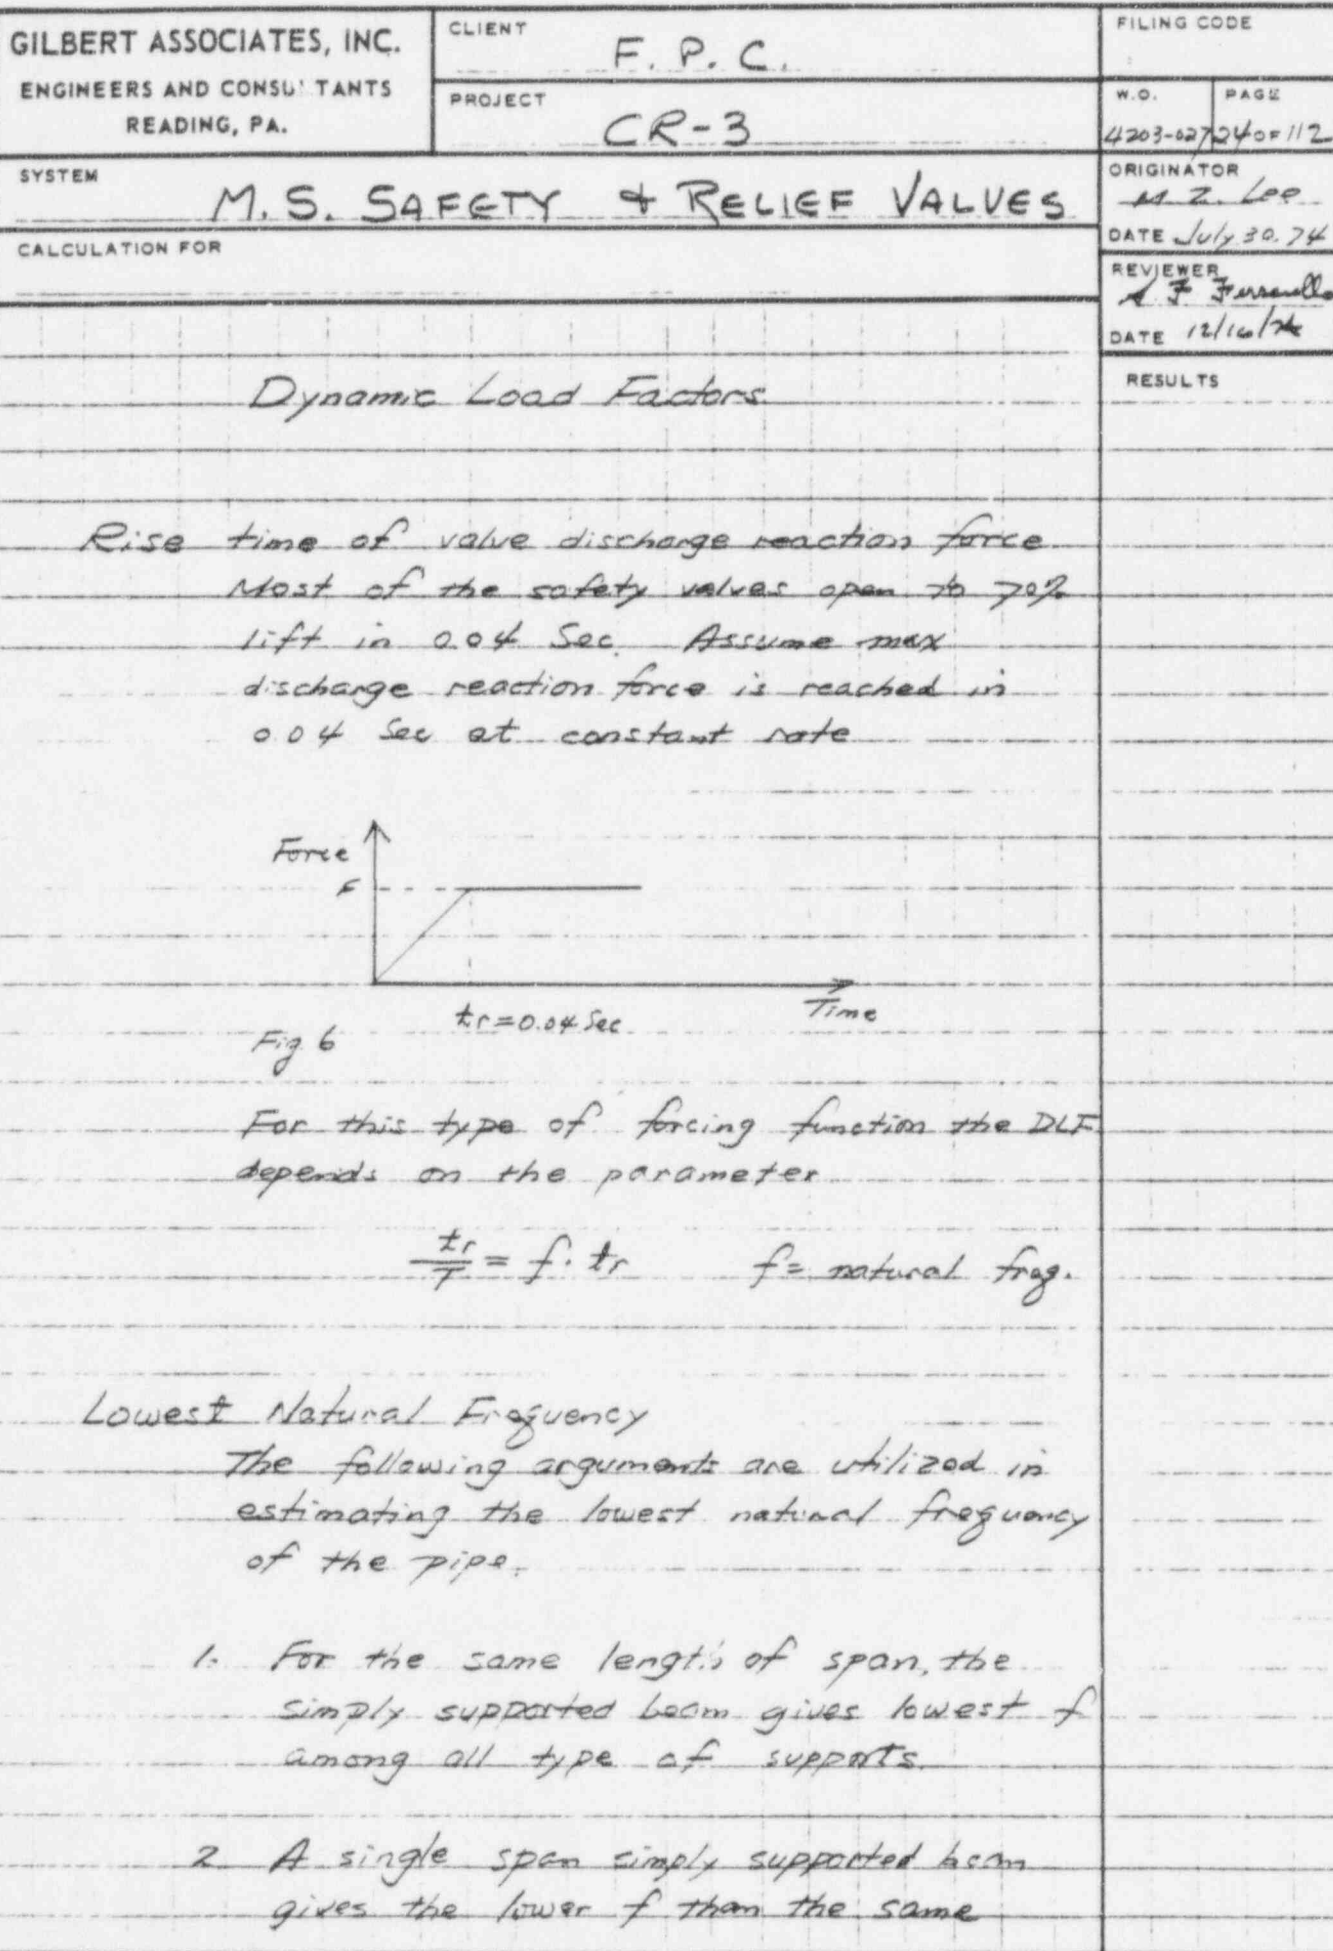 GILBERT ASSOCIATES, INC.
ENGINEERS AND CONSULTANTS
READING, PA.
CLIENT
F. P. C.
PROJECT
CR-3
FILING CODE
W.O.
4203-027
PAGE
24 OF 112
SYSTEM
M. S. SAFETY & RELIEF VALVES
ORIGINATOR
M Z. Lee
DATE July 30. 74
CALCULATION FOR
REVIEWER
DATE 12/16/74
RESULTS
Dynamic Load Factors
Rise time of valve discharge reaction force
Most of the safety valves open to 70%
lift in 0.04 Sec. Assume max
discharge reaction force is reached in
0.04 Sec at constant rate
Force
F
tr=0.04 Sec
Time
Fig. 6
For this type of forcing function the DLF
depends on the parameter
tr/T = f. tr f= natural freq.
Lowest Natural Frequency
The following arguments are utilized in
estimating the lowest natural frequency
of the pipe.
1. For the same length of span, the
simply supported beam gives lowest f
among all type of supports.
2 A single span simply supported beam
gives the lower f than the same